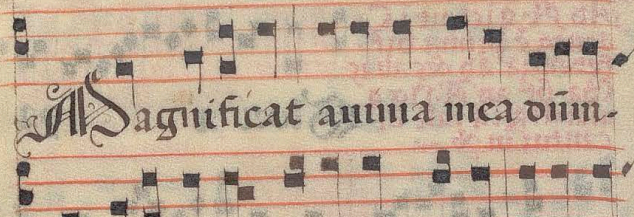 Magnificat anima mea dūm-